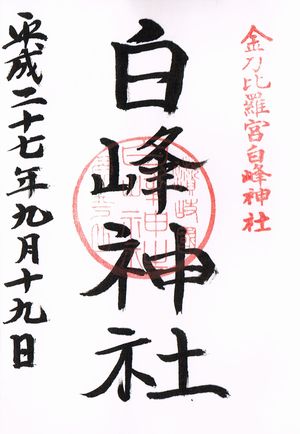 金刀比羅宮白峰神社
白峰神社
平成二十七年九月十九日